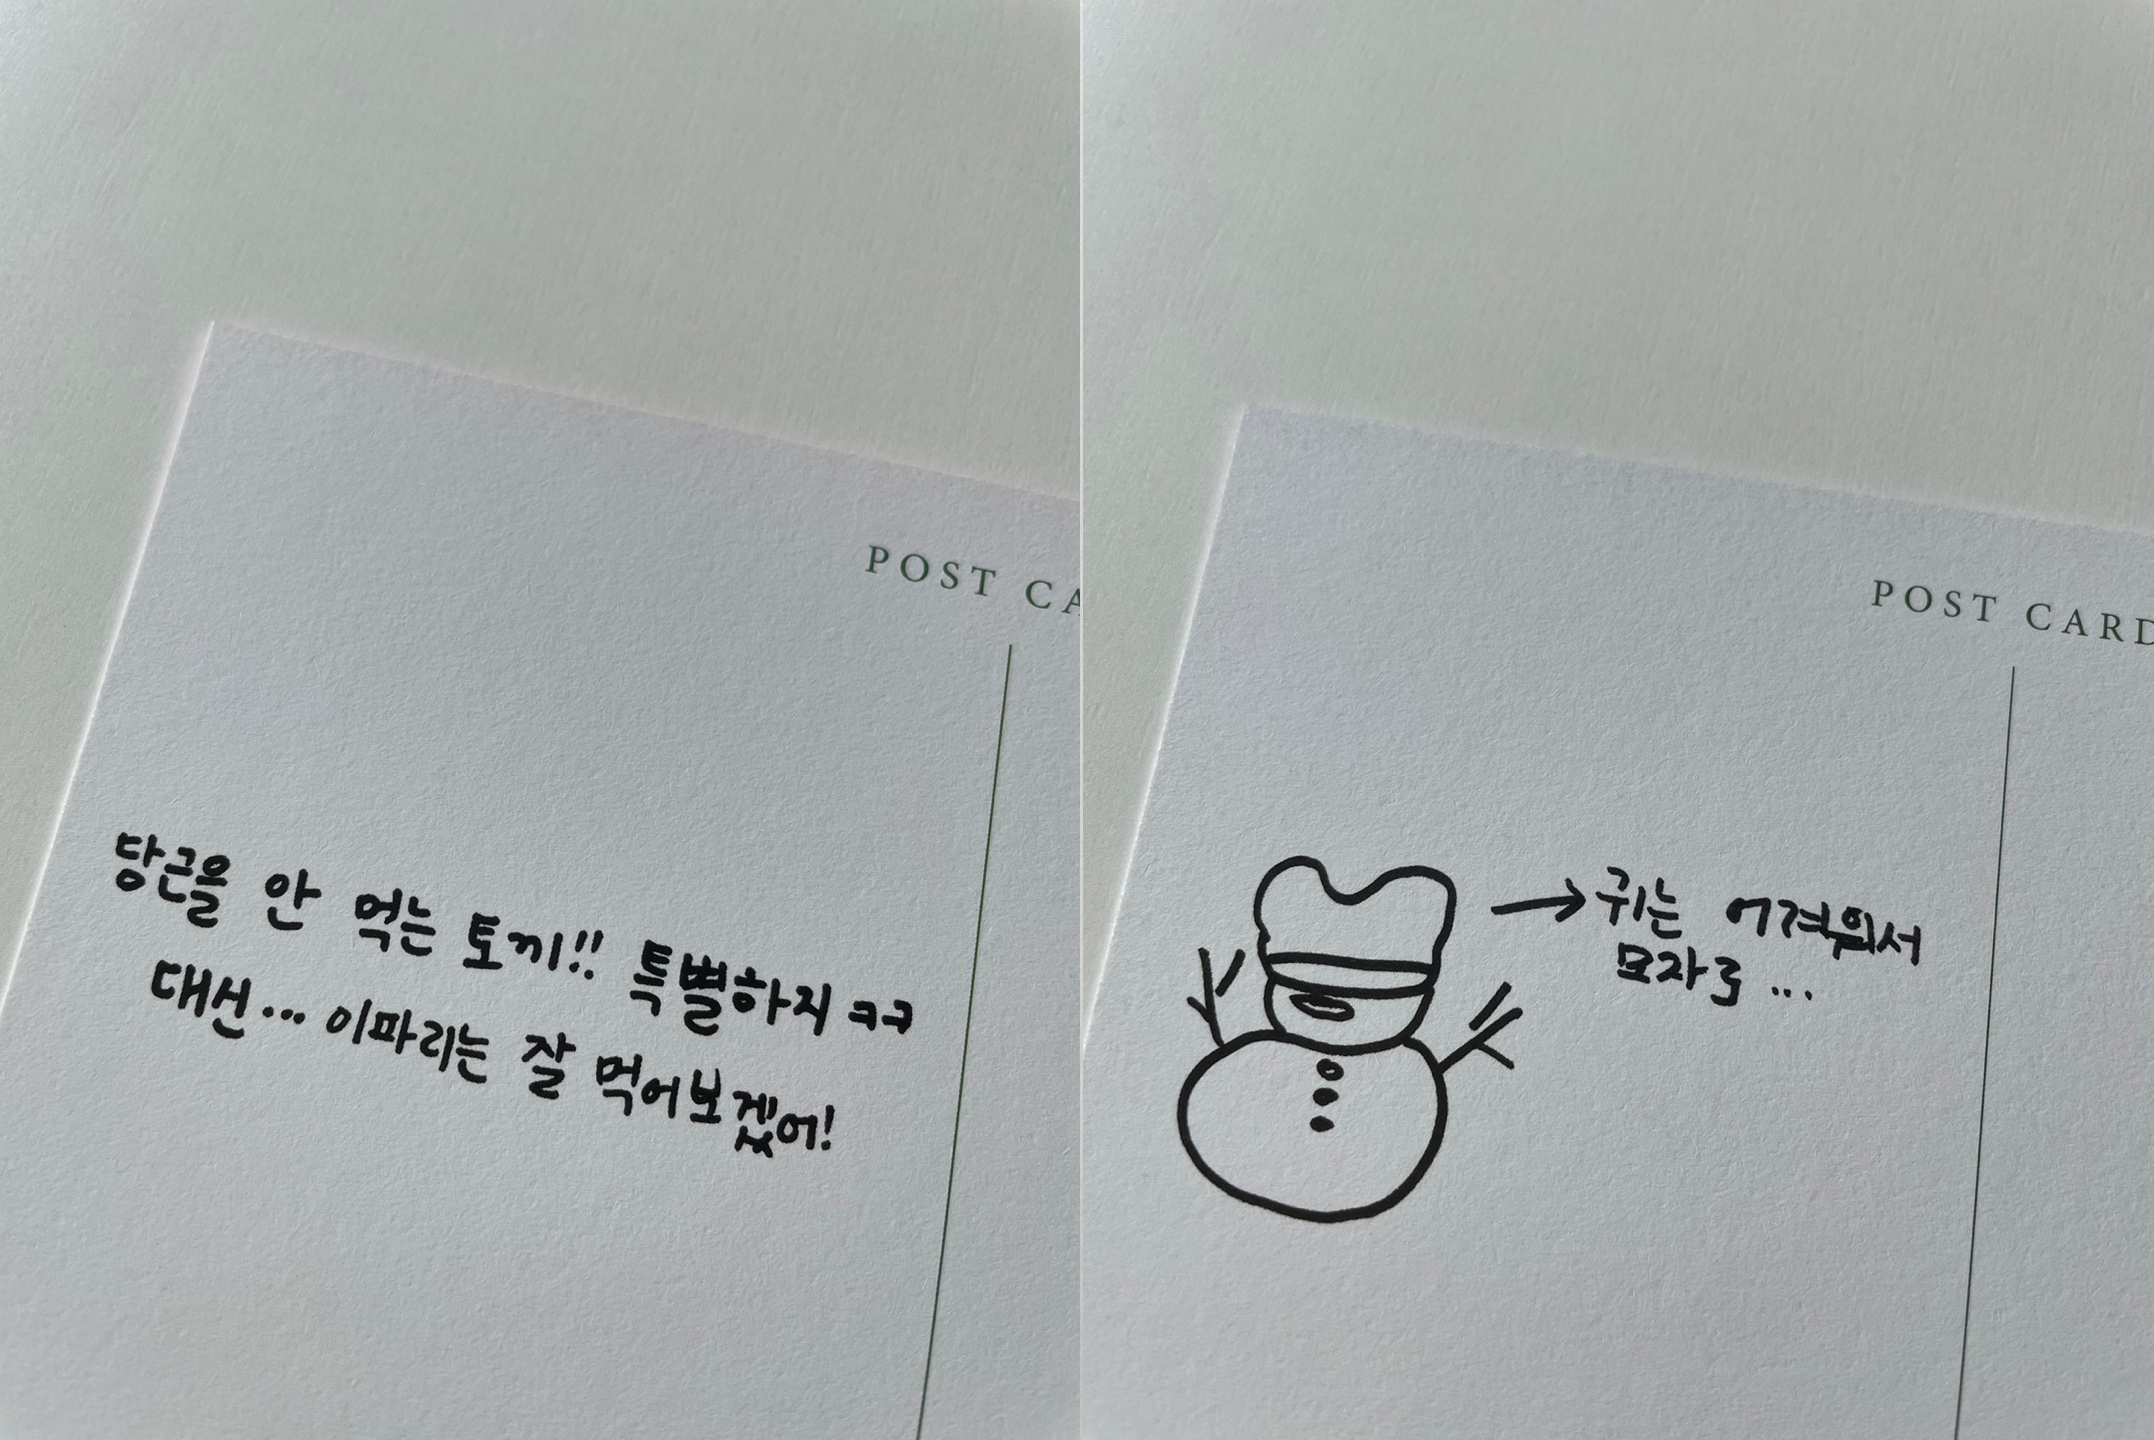 POST CA
당근을 안 먹는 토끼!! 특별하지 ㅋㅋ
대신... 이파리는 잘 먹어보겠어!
POST CARD
→귀는 어려워서
모자로...